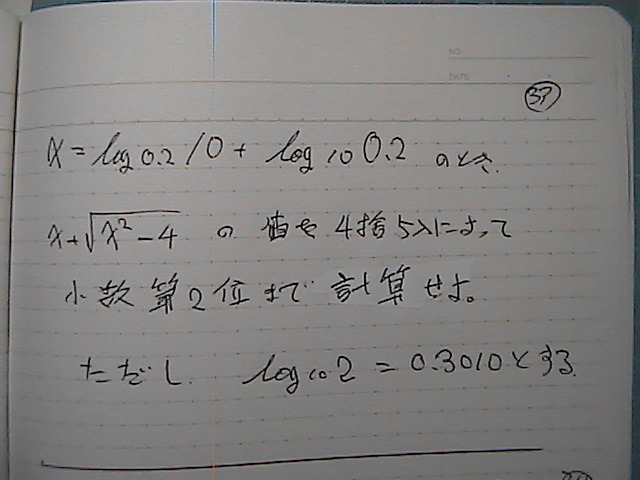 NO.
DATE
37
x = log 0.2 10 + log 10 0.2 のとき.
x+√x²-4 の 値を 4捨5入によって
小数第2位まで 計算せよ。
ただし. log 10 2 = 0.3010とする.